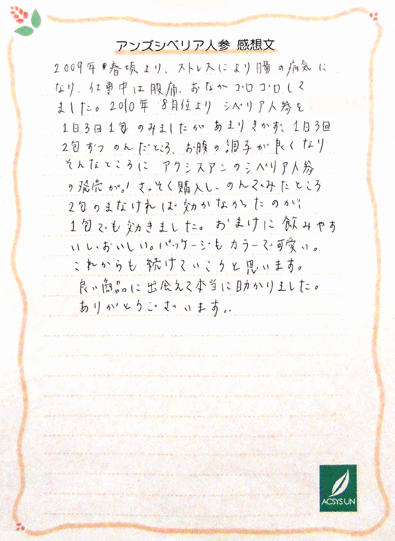 アンズシベリア人参 感想文
2009年春頃より、ストレスにより腸の病気に
なり、仕事中は腹痛、おなかゴロゴロして
ました。2010年 8月位より シベリア人参を
1日3回1包 のみましたが あまりきかず、1日3回
2包ずつ のんだところ、お腹の調子が良くなり
そんなところに アクシスアンのシベリア人参
の発売が。! さっそく購入し、のんでみたところ
2包のまなければ効かなかったのが、
1包でも効きました。おまけに飲みやす
いし、おいしい。パッケージもカラーで可愛い。
これからも続けていこうと思います。
良い商品に出会えて本当に助かりました。
ありがとうございます。
ACSYSUN